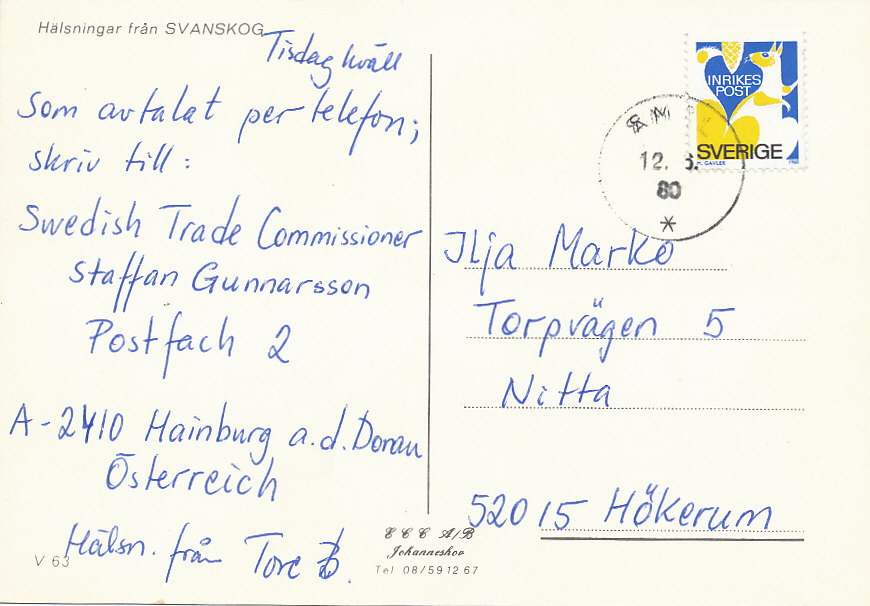 Hälsningar från SVANSKOG
Tisdag kväll
Som avtalat per telefon;
skriv till:
Swedish Trade Commissioner
Staffan Gunnarsson
Postfach 2
A-2410 Hainburg a.d. Donau
Österreich
Hälsn. från Tore B.
V 63
INRIKES
POST
SVERIGE
M. GAVLER 1980
12. 6.
80
*
Ilja Marko
Torpvägen 5
Nitta
52015 Hökerum
E C C A/B
Johanneshov
Tel 08/59 12 67